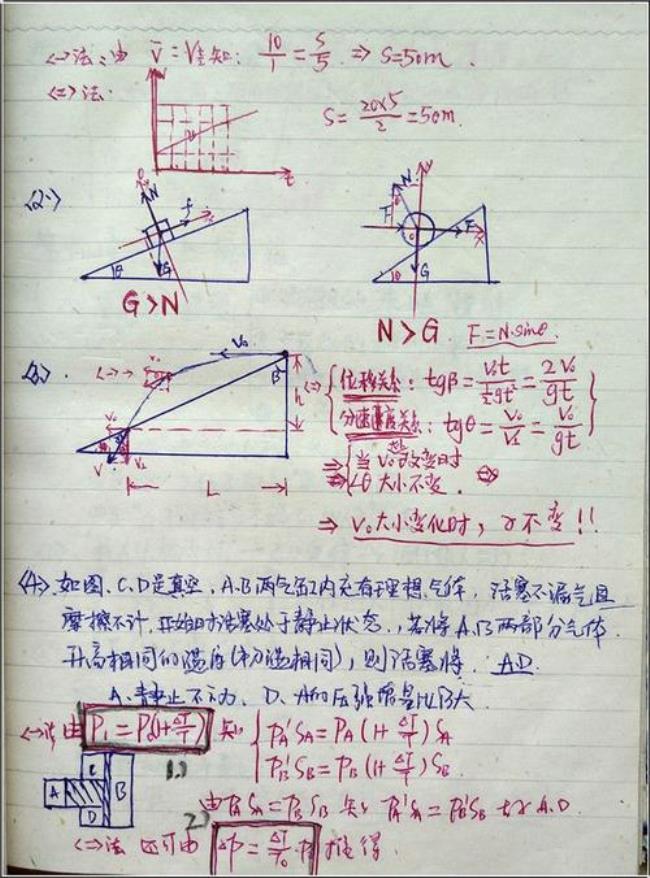 <一>法:由 v̄=V中知: 10/1=S/5 ⇒ S=50m.
<二>法:
S=20×5/2=50m.
t
<2>
N
f
θ
G
G>N
N
F
F
θ
G
N>G F=N·sinθ.
<3>.
V₀
β
h
L
<二> 位移关系: tgβ=V₀t/½gt²=2V₀/gt
分速度关系: tgθ=V₀/V⊥=V₀/gt
⇒ 当V₀改变时
∠θ大小不变.
⇒ V₀大小变化时,γ不变!!
<4>.如图、C、D是真空,A、B两气缸内充有理想气体,活塞不漏气且
摩擦不计,开始时活塞处于静止状态.,若将A、B两部分气体
升高相同的温度(初温相同),则活塞将 AD.
A、静止不动、D、A的压强增量比B大.
<一>法由 P₁=P₀(1+ΔT/T) 知 P_A'S_A=P_A(1+ΔT/T)S_A
P_B'S_B=P_B(1+ΔT/T)S_B.
A C D B
由P_AS_A=P_BS_B 知 P_A'S_A=P_B'S_B 故A.D.
<二>法 还可由 ΔP=ΔT/T₀·P 推得.